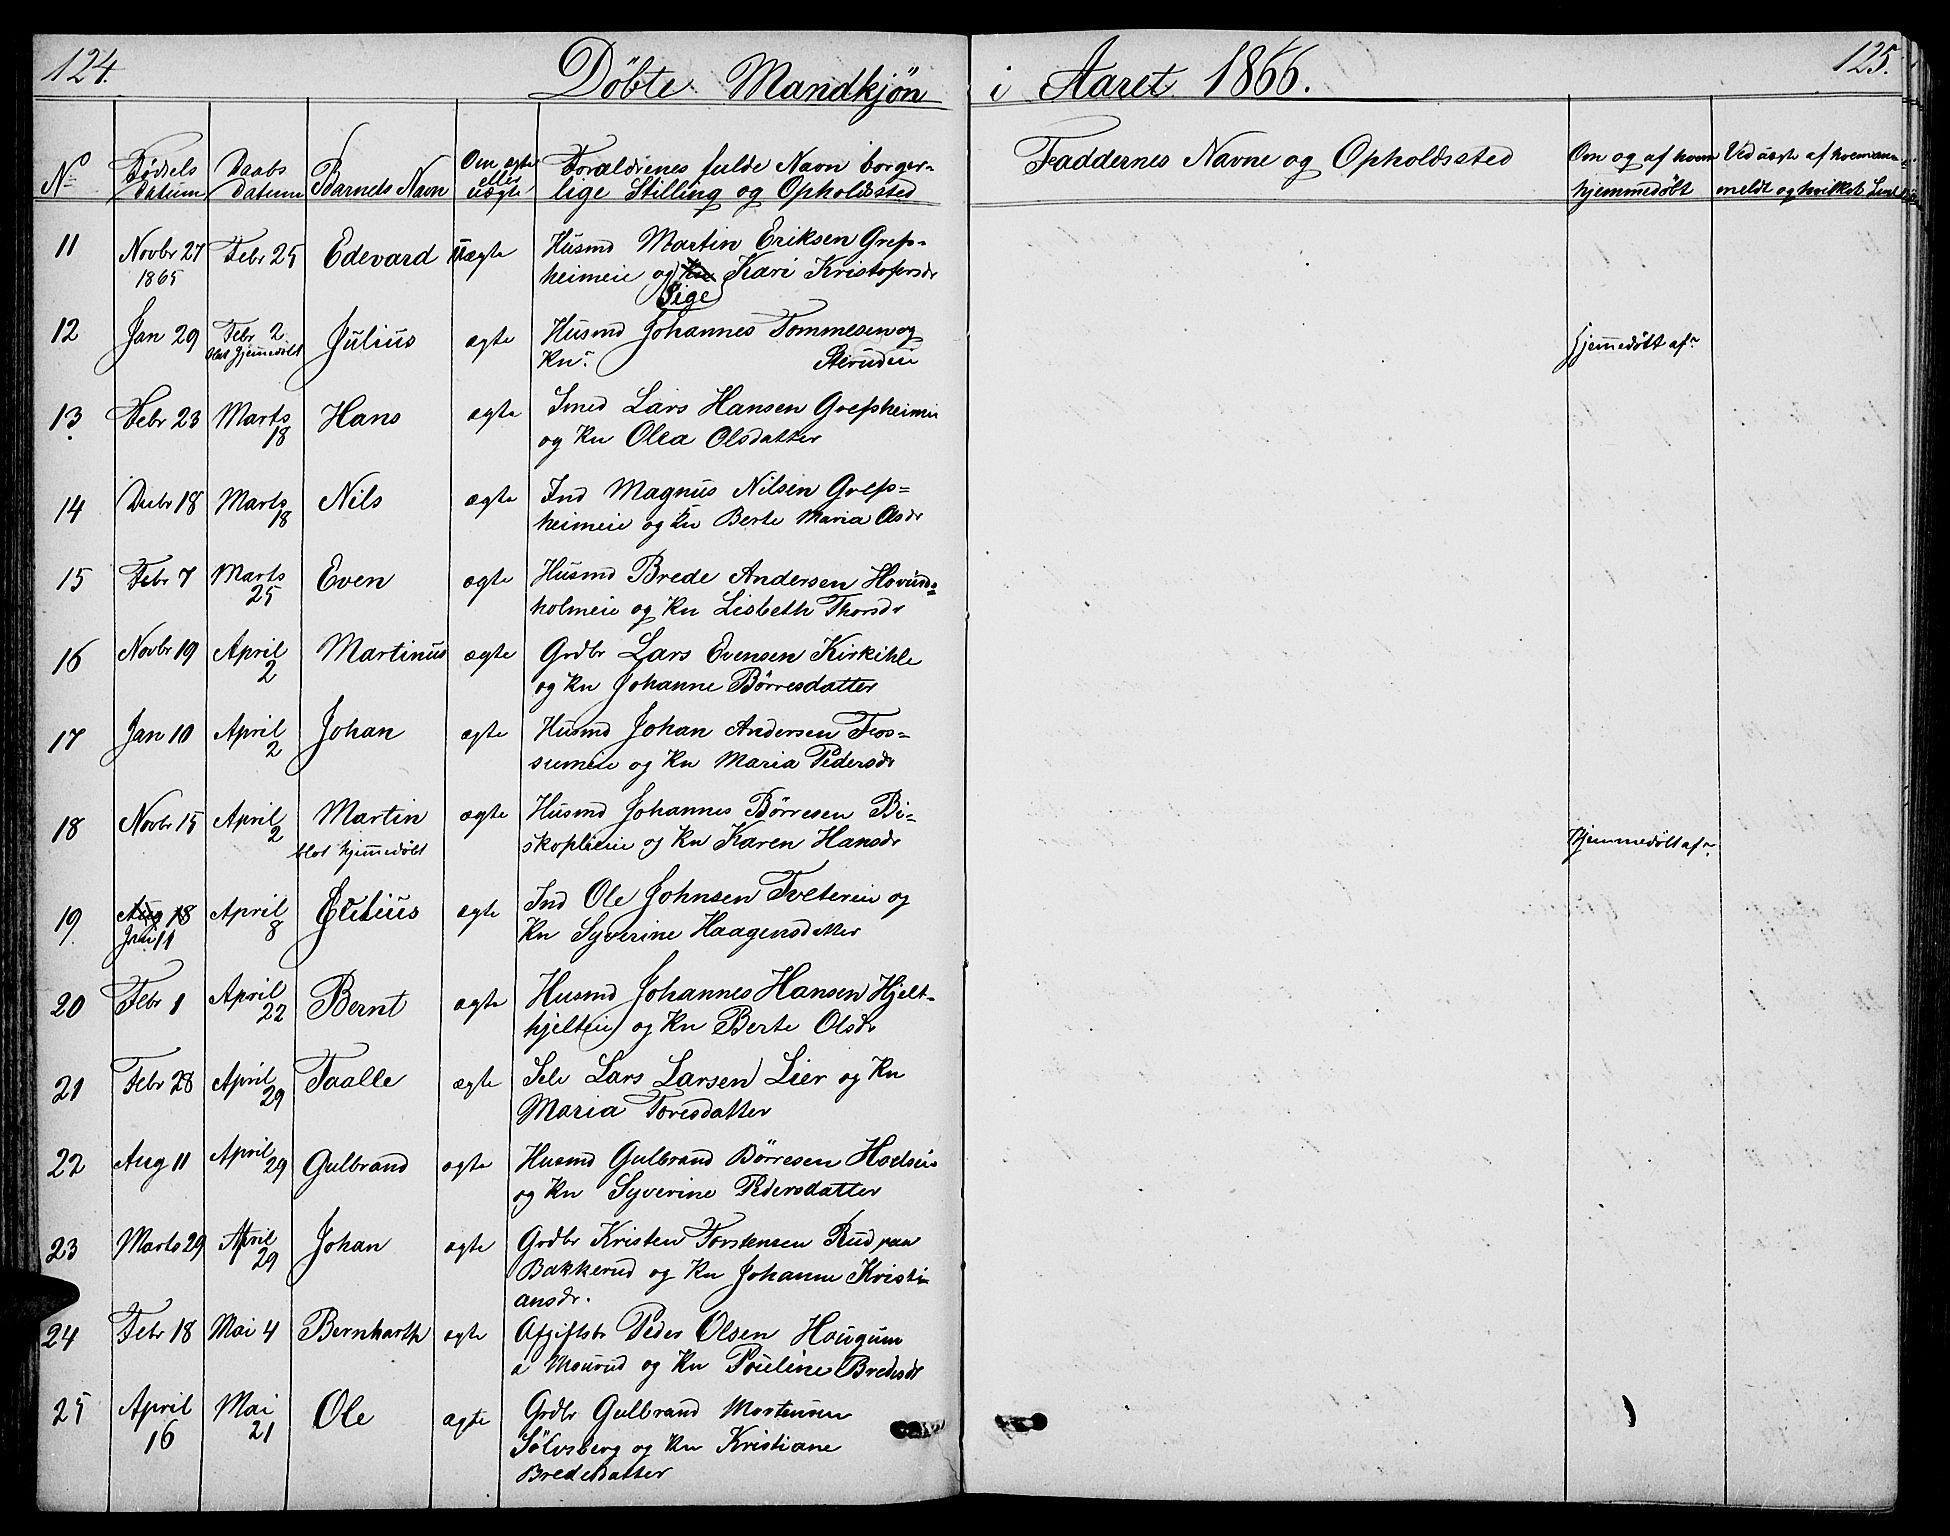 124.
Döbte Mandkjön
i Aaret 1866.
125.
No
Födsels Datum
Daabs Datum
Barnets Navn
Om ægte eller uægte
Forældrenes fulde Navn borger-
lige Stilling og Opholdssted
Faddernes Navne og Opholdssted
Om og af hvem
hjemmedöbt
Ved uægte af hvem an-
meldt og hvilket
11 Novbr 27 Febr 25 Edevard uægte Husmd Martin Eriksen Grefs-
1865 heimeie og Kn Kari Kristofersdr
Pige
12 Jan 29 Febr 2 Julius ægte Husmd Johannes Tommesen og
blot hjemmedöbt Kn. hjemmedöbt af
13 Febr 23 Marts ægte Smed Lars Hansen Grefsheimeie
18 Hans og Kn Olea Olsdatter
14 Decbr 18 Marts Nils ægte Ind Magnus Nilsen Grefs=
18 heimeie og Kn Berte Maria Olsdr
15 Febr 7 Marts Even ægte Husmd Brede Andersen Hovinds=
25 holmeie og Kn Lisbeth Thorsdr
16 Novbr 19 April Martinus ægte Grdbr Lars Evensen Kirkihle
2 og Kn Johanne Börresdatter
17 Jan 10 April Johan ægte Husmd Johan Andersen Fos=
2 sumeie og Kn Maria Pedersdr
18 Novbr 15 April Martin ægte Husmd Johannes Börresen Bi-
2 blot hjemmedöbt skoplieie og Kn Karen Hansdr hjemmedöbt af
19 Aug 18 April ægte Ind Ole Johnsen Tveterie og
Jan 11 8 Kn Syverine Haagensdatter
20 Febr 1 April Bernt ægte Husmd Johannes Hansen Hjelt-
22 hjelteie og Kn Berte Olsdr
21 Febr 28 April Taalle ægte Selv Lars Larsen Lier og Kn
29 Maria Toresdatter
22 Aug 11 April Gulbrand ægte Husmd Gulbrand Börresen Hoelseie
29 og Kn Syverine Pedersdatter
23 Marts 29 April Johan ægte Grdbr Kristen Torstensen Rud paa
29 Bakkerud og Kn Johanne Kristi-
ansdr.
24 Febr 18 Mai 4 Bernharth ægte Afgiftsbr Peder Olsen Hougum
a Mourud og Kn Pouline Bredesdr
25 April Mai Ole ægte Grdbr Gulbrand Mortensen
16 21 Sölvsberg og Kn Kristiane
Bredesdatter